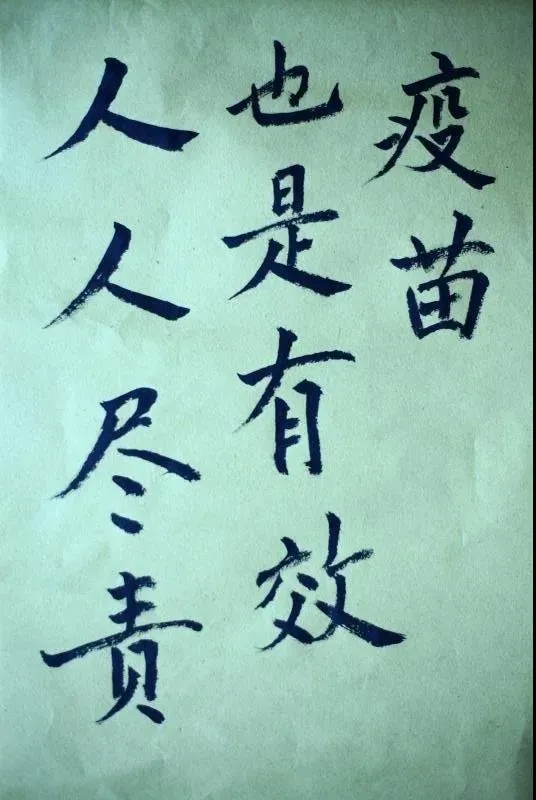 疫苗
也是有效
人人尽责